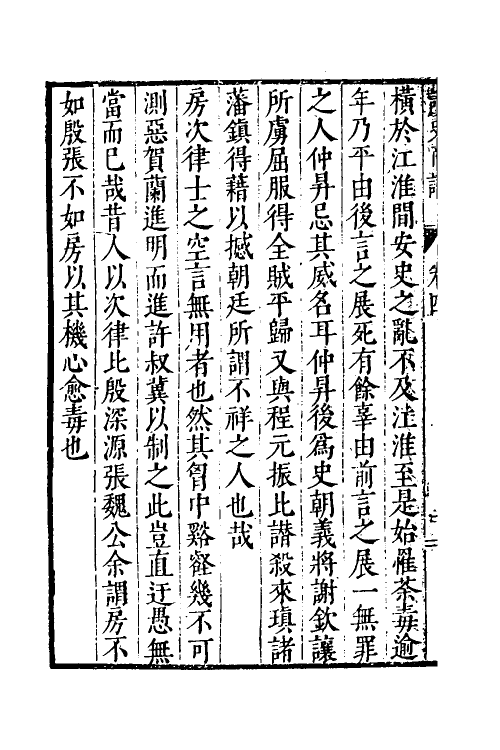 橫於江淮間安史之亂不及江淮至是始罹荼毒逾
年乃平由後言之展死有餘辜由前言之展一無罪
之人仲昇忌其威名耳仲昇後爲史朝義將謝欽讓
所虜屈服得全賊平歸又與程元振比譖殺來瑱諸
藩鎮得藉以撼朝廷所謂不祥之人也哉
房次律士之空言無用者也然其胷中谿壑幾不可
測惡賀蘭進明而進許叔冀以制之此豈直迂愚無
當而已哉昔人以次律比殷深源張魏公余謂房不
如殷張不如房以其機心愈毒也
卷四